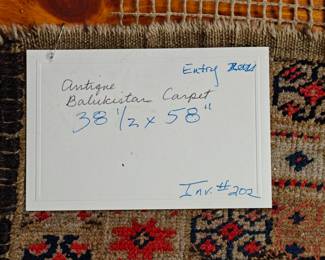 Entry
Antique
Balukistan Carpet
38 1/2 x 58"
Inv. # 202